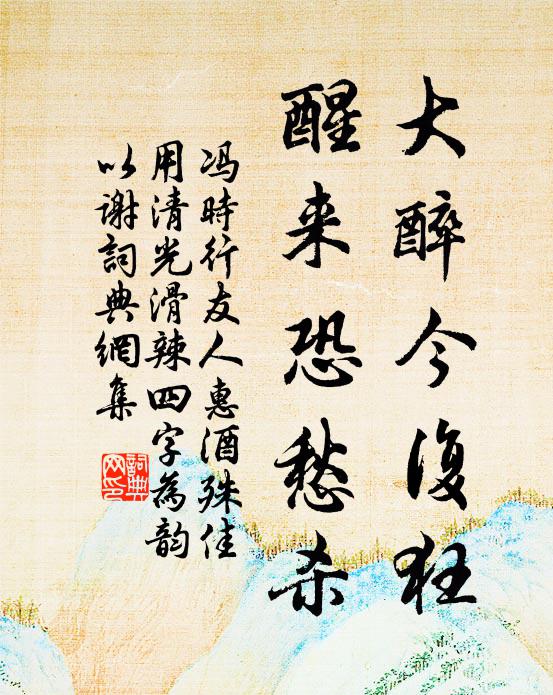 大醉今復狂
醒来恐愁杀
冯時行友人惠酒殊佳
用清光滑辣四字為韵
以谢詞典網集
詞典网印